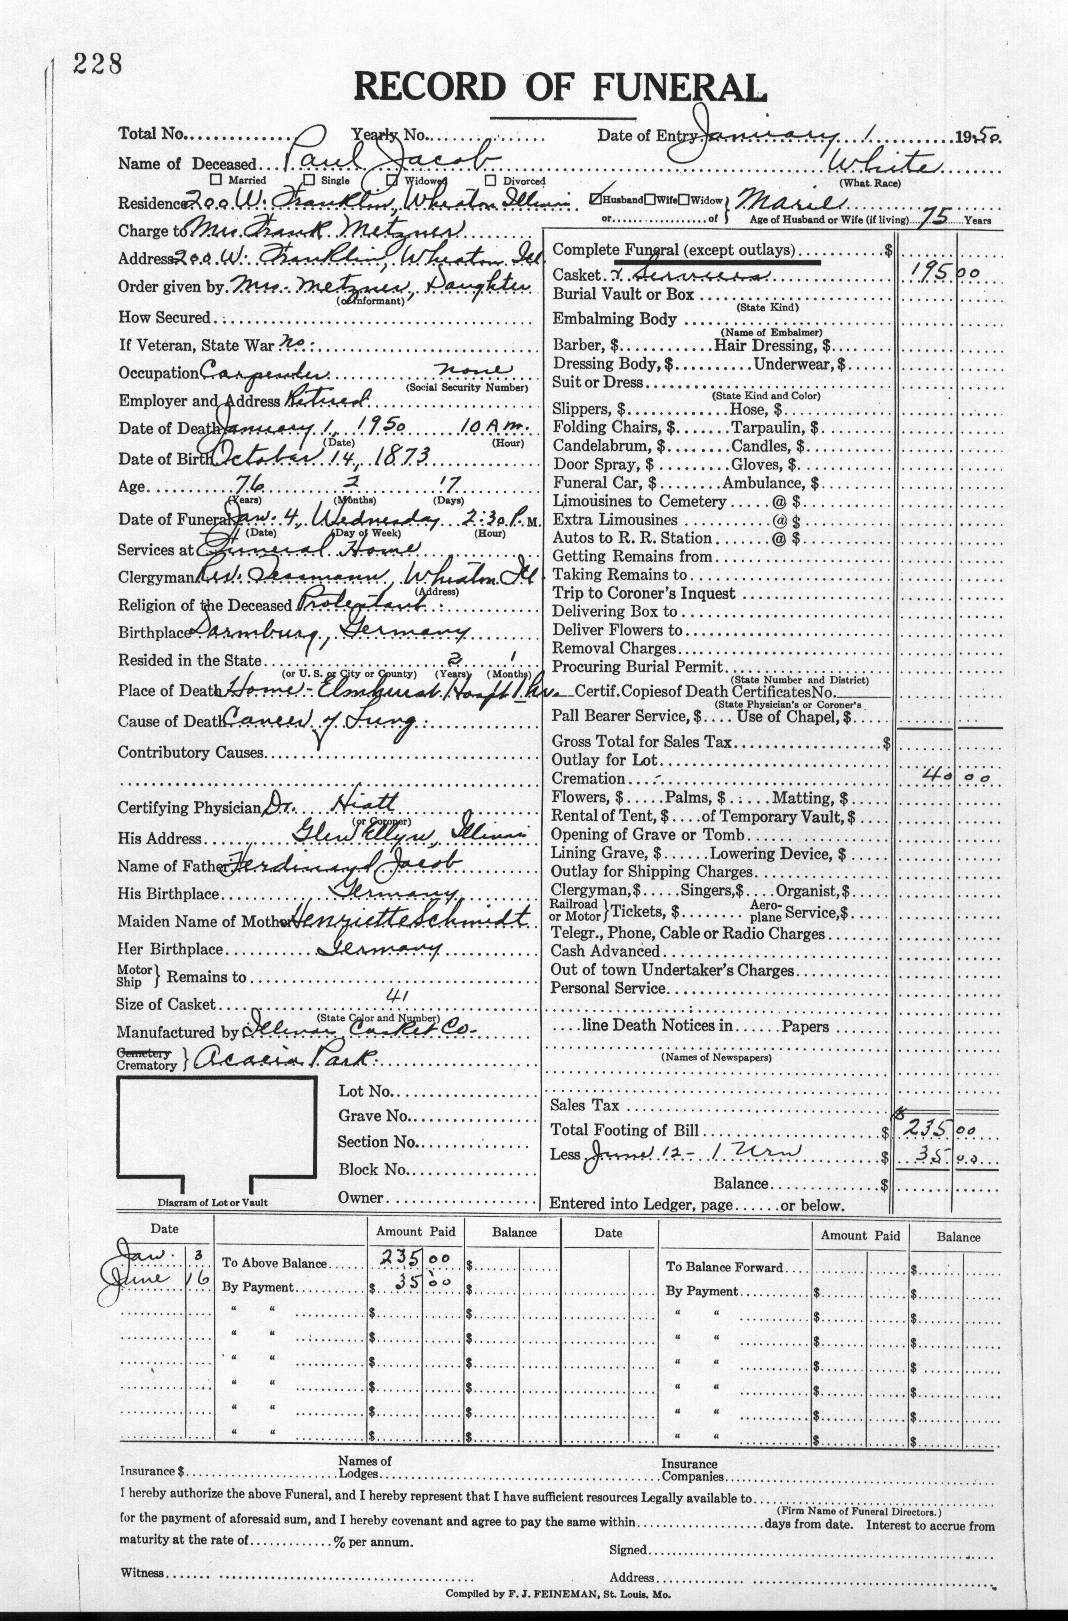 228
RECORD OF FUNERAL
Total No. Yearly No. Date of Entry January 1 1950.
Name of Deceased Paul Jacob White
Married Single Widowed Divorced (What Race)
Residence 200 W. Franklin, Wheaton Illinois Husband Wife Widow or of } Marie
Age of Husband or Wife (if living) 75 Years
Charge to Mrs. Frank Metzner
Address 200 W. Franklin, Wheaton Ill
Order given by Mrs. Metzner, Daughter
(or Informant)
How Secured
If Veteran, State War no.
Occupation Carpender none
(Social Security Number)
Employer and Address Retired
Date of Death January 1, 1950 10 A.m.
(Date) (Hour)
Date of Birth October 14, 1873
Age 76 2 17
(Years) (Months) (Days)
Date of Funeral Jan. 4, Wednesday 2:30 P.M.
(Date) (Day of Week) (Hour)
Services at Funeral Home
Clergyman Rev. Wheaton Ill
(Address)
Religion of the Deceased Protestant
Birthplace Germany
Resided in the State 2 1
(or U. S. or City or County) (Years) (Months)
Place of Death Home - Elmhurst Hospt.
Cause of Death Cancer of Lung
Contributory Causes
Certifying Physician Dr. Hiatt
(or Coroner)
His Address Glen Ellyn, Illinois
Name of Father Ferdinand Jacob
His Birthplace Germany
Maiden Name of Mother Henriette Schmidt
Her Birthplace Germany
Motor Ship } Remains to
Size of Casket 41
(State Color and Number)
Manufactured by Illinois Casket Co.
Cemetery Crematory } Acacia Park
Lot No.
Grave No.
Section No.
Block No.
Owner
Diagram of Lot or Vault
Complete Funeral (except outlays) $
Casket & Services 195 00
Burial Vault or Box
(State Kind)
Embalming Body
(Name of Embalmer)
Barber, $ Hair Dressing, $
Dressing Body, $ Underwear, $
Suit or Dress
(State Kind and Color)
Slippers, $ Hose, $
Folding Chairs, $ Tarpaulin, $
Candelabrum, $ Candles, $
Door Spray, $ Gloves, $
Funeral Car, $ Ambulance, $
Limousines to Cemetery @ $
Extra Limousines @ $
Autos to R. R. Station @ $
Getting Remains from
Taking Remains to
Trip to Coroner's Inquest
Delivering Box to
Deliver Flowers to
Removal Charges
Procuring Burial Permit
(State Number and District)
Certif. Copies of Death Certificates No.
(State Physician's or Coroner's
Pall Bearer Service, $ Use of Chapel, $
Gross Total for Sales Tax $
Outlay for Lot
Cremation 40 00
Flowers, $ Palms, $ Matting, $
Rental of Tent, $ of Temporary Vault, $
Opening of Grave or Tomb
Lining Grave, $ Lowering Device, $
Outlay for Shipping Charges
Clergyman, $ Singers, $ Organist, $
Railroad or Motor } Tickets, $ Aeroplane Service, $
Telegr., Phone, Cable or Radio Charges
Cash Advanced
Out of town Undertaker's Charges
Personal Service
line Death Notices in Papers
(Names of Newspapers)
Sales Tax
Total Footing of Bill $ 235 00
Less June 12 - 1 Urn $ 35 00
Balance $
Entered into Ledger, page or below.
Date Amount Paid Balance Date Amount Paid Balance
Jan. 3 To Above Balance 235 00 $ To Balance Forward $
June 16 By Payment $ 35 00 $ By Payment $ $
" " $ $ " " $ $
" " $ $ " " $ $
" " $ $ " " $ $
" " $ $ " " $ $
" " $ $ " " $ $
" " $ $ " " $ $
Insurance $ Names of Lodges Insurance Companies
I hereby authorize the above Funeral, and I hereby represent that I have sufficient resources Legally available to
(Firm Name of Funeral Directors.)
for the payment of aforesaid sum, and I hereby covenant and agree to pay the same within days from date. Interest to accrue from
maturity at the rate of % per annum.
Signed
Witness Address
Compiled by F. J. FEINEMAN, St. Louis, Mo.